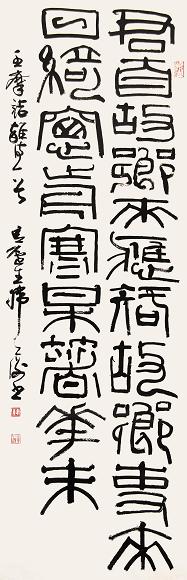 君自故鄉來應知故鄉事來
日綺窗前寒某著花未
王摩詰雜詩一首